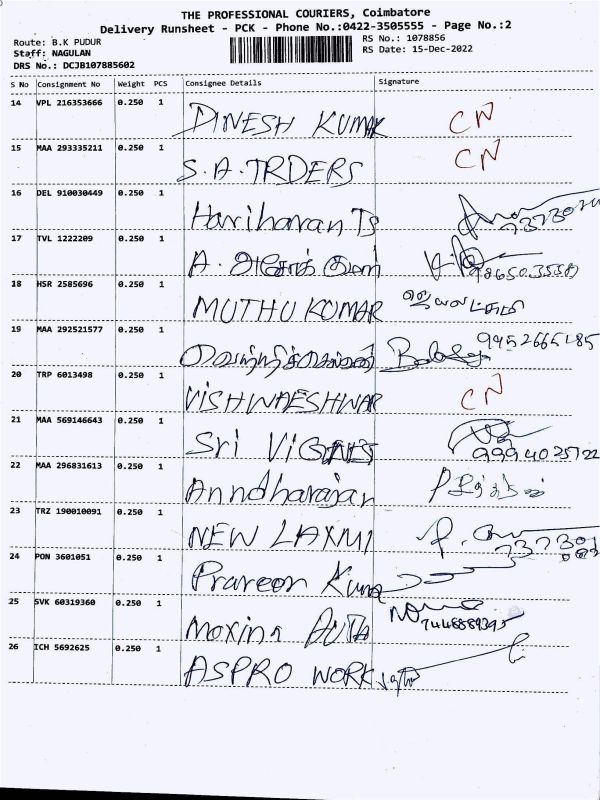 THE PROFESSIONAL COURIERS, Coimbatore
Delivery Runsheet - PCK - Phone No.:0422-3505555 - Page No.:2
Route: B.K PUDUR
RS No.: 1078856
Staff: NAGULAN
RS Date: 15-Dec-2022
DRS No.: DCJB107885602
S No Consignment No Weight PCS Consignee Details Signature
14 VPL 216353666 0.250 1 DINESH KUMAR CN
15 MAA 293335211 0.250 1 S.A.TRDERS CN
16 DEL 910030449 0.250 1 Hariharan TS
17 TVL 1222209 0.250 1 A. அசோக் குமார்
18 HSR 2585696 0.250 1 MUTHU KUMAR ஜெயலட்சுமி
19 MAA 292521577 0.250 1 9952665185
20 TRP 6013498 0.250 1 VISHWAESHWAR CN
21 MAA 569146643 0.250 1 Sri 9994025722
22 MAA 296831613 0.250 1 Anndharajan
23 TRZ 190010091 0.250 1 NEW LAXMI
24 PON 3601051 0.250 1 Praveen Kuma
25 SVK 60319360 0.250 1 7448889395
26 ICH 5692625 0.250 1 ASPRO WORK